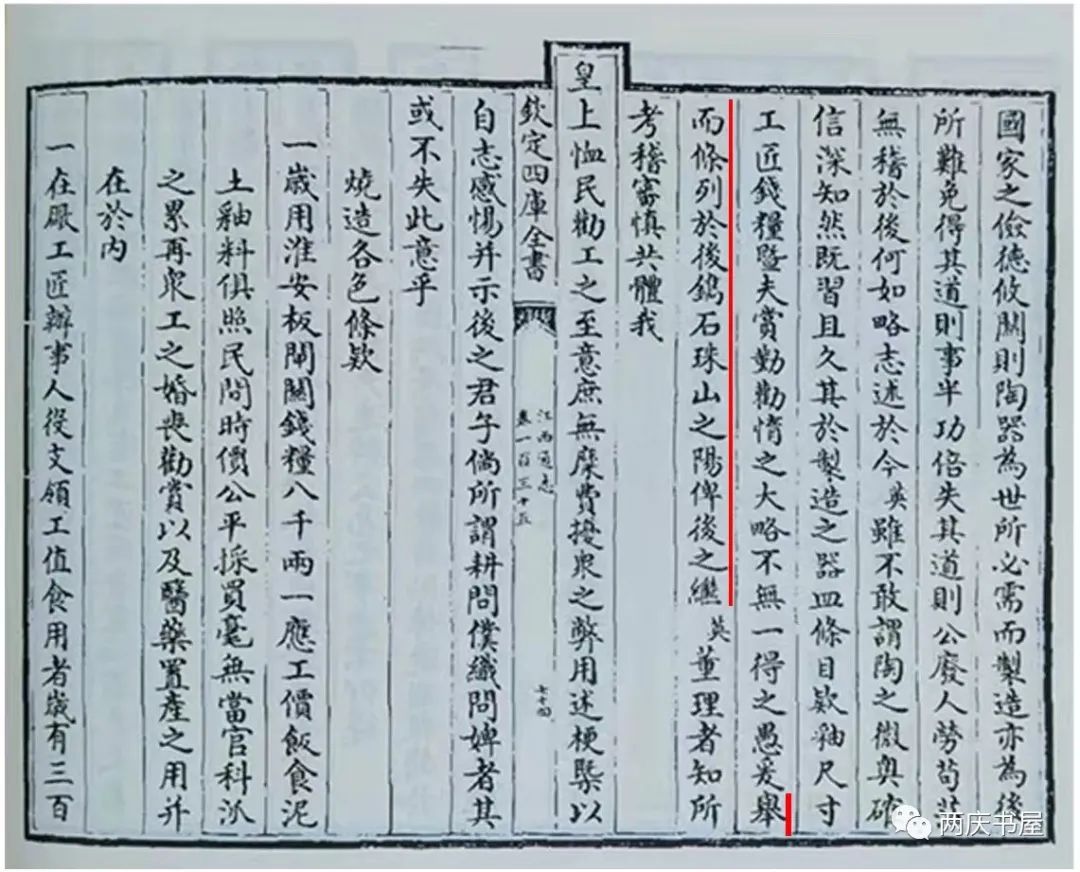 國家之儉德攸關則陶器為世所必需而製造亦為後
所難免得其道則事半功倍失其道則公廢人勞苟
無稽於後何如略志述於今英雖不敢謂陶之微奧確
信深知然既習且久其於製造之器皿條目欵釉尺寸
工匠錢糧暨夫賞勤勸惰之大略不無一得之愚爰舉
而條列於後鐫石珠山之陽俾後之繼英董理者知所
考稽審慎共體我
皇上恤民勸工之至意庶無糜費擾眾之弊用述梗槩以
欽定四庫全書
江西通志
卷一百三十五
七十四
自志感惕并示後之君子倘所謂耕問僕織問婢者其
或不失此意乎
燒造各色條欵
一歲用淮安板閘關錢糧八千兩一應工價飯食泥
土釉料俱照民間時價公平採買毫無當官科派
之累再眾工之婚喪勸賞以及醫藥置產之用并
在於內
一在厰工匠辦事人役支領工值食用者歲有三百
两庆书屋